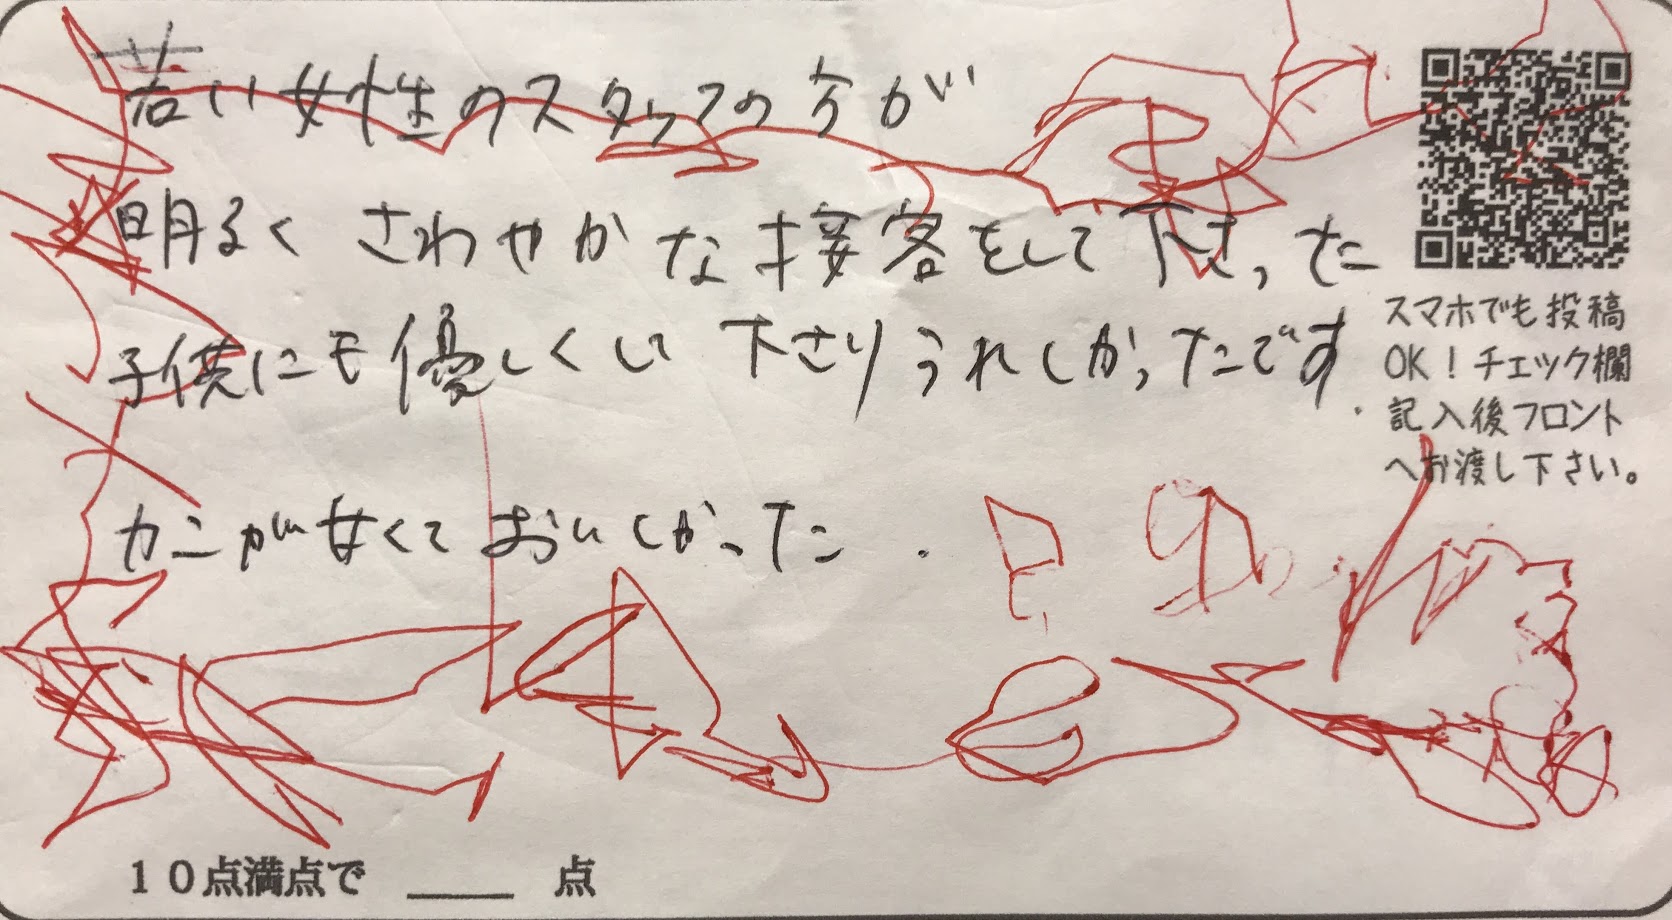 若い女性のスタッフの方が
明るく さわやかな接客をして下さった
子供にも優しくして下さりうれしかったです.
カニが甘くておいしかった.
スマホでも投稿
OK！チェック欄
記入後フロント
へお渡し下さい。
１０点満点で ____ 点